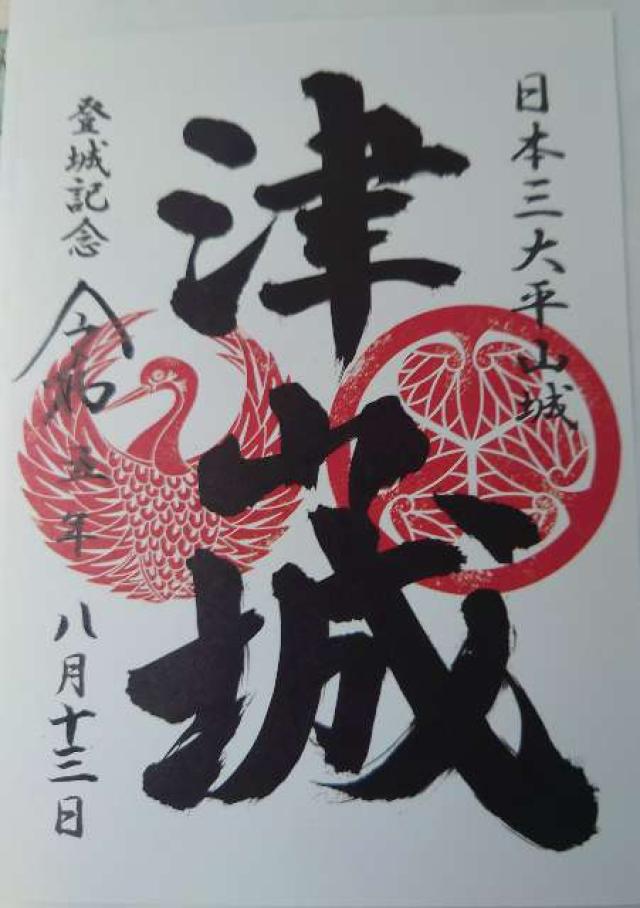 日本三大平山城
津山城
登城記念
令和五年
八月十三日